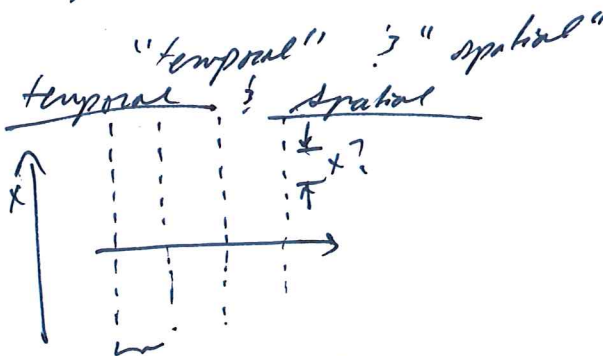 "temporal" & "spatial"
temporal & spatial
x?
x